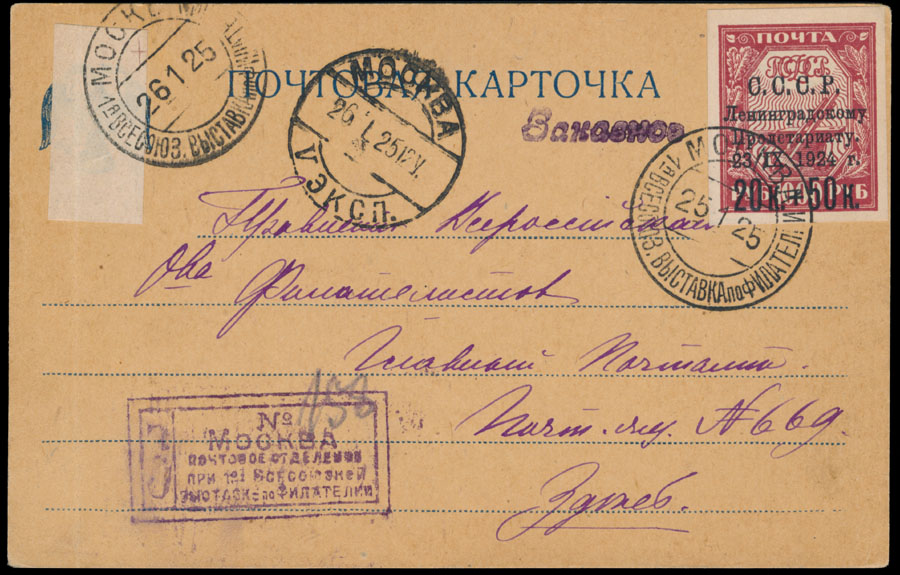 ПОЧТОВАЯ КАРТОЧКА
Заказное
ПОЧТА
С.С.С.Р.
Ленинградскому
Пролетариату.
23/IX 1924 г.
20 к. + 50 к.
МОСКВА
26 1 25
1я ВСЕСОЮЗ. ВЫСТАВКА
МОСКВА
26. 1. 25 12 V.
V ЭКСП.
МОСКВА
25 1 25
1я ВСЕСОЮЗ. ВЫСТАВКА по ФИЛАТЕЛ.
Правление Всероссийскаго
Ова Филателистов
Главный Почтамт.
Почт. ящ. № 669.
Здесь.
З
№ 138
МОСКВА
ПОЧТОВОЕ ОТДЕЛЕНИЕ
ПРИ 1й ВСЕСОЮЗНОЙ
ВЫСТАВКЕ по ФИЛАТЕЛИИ